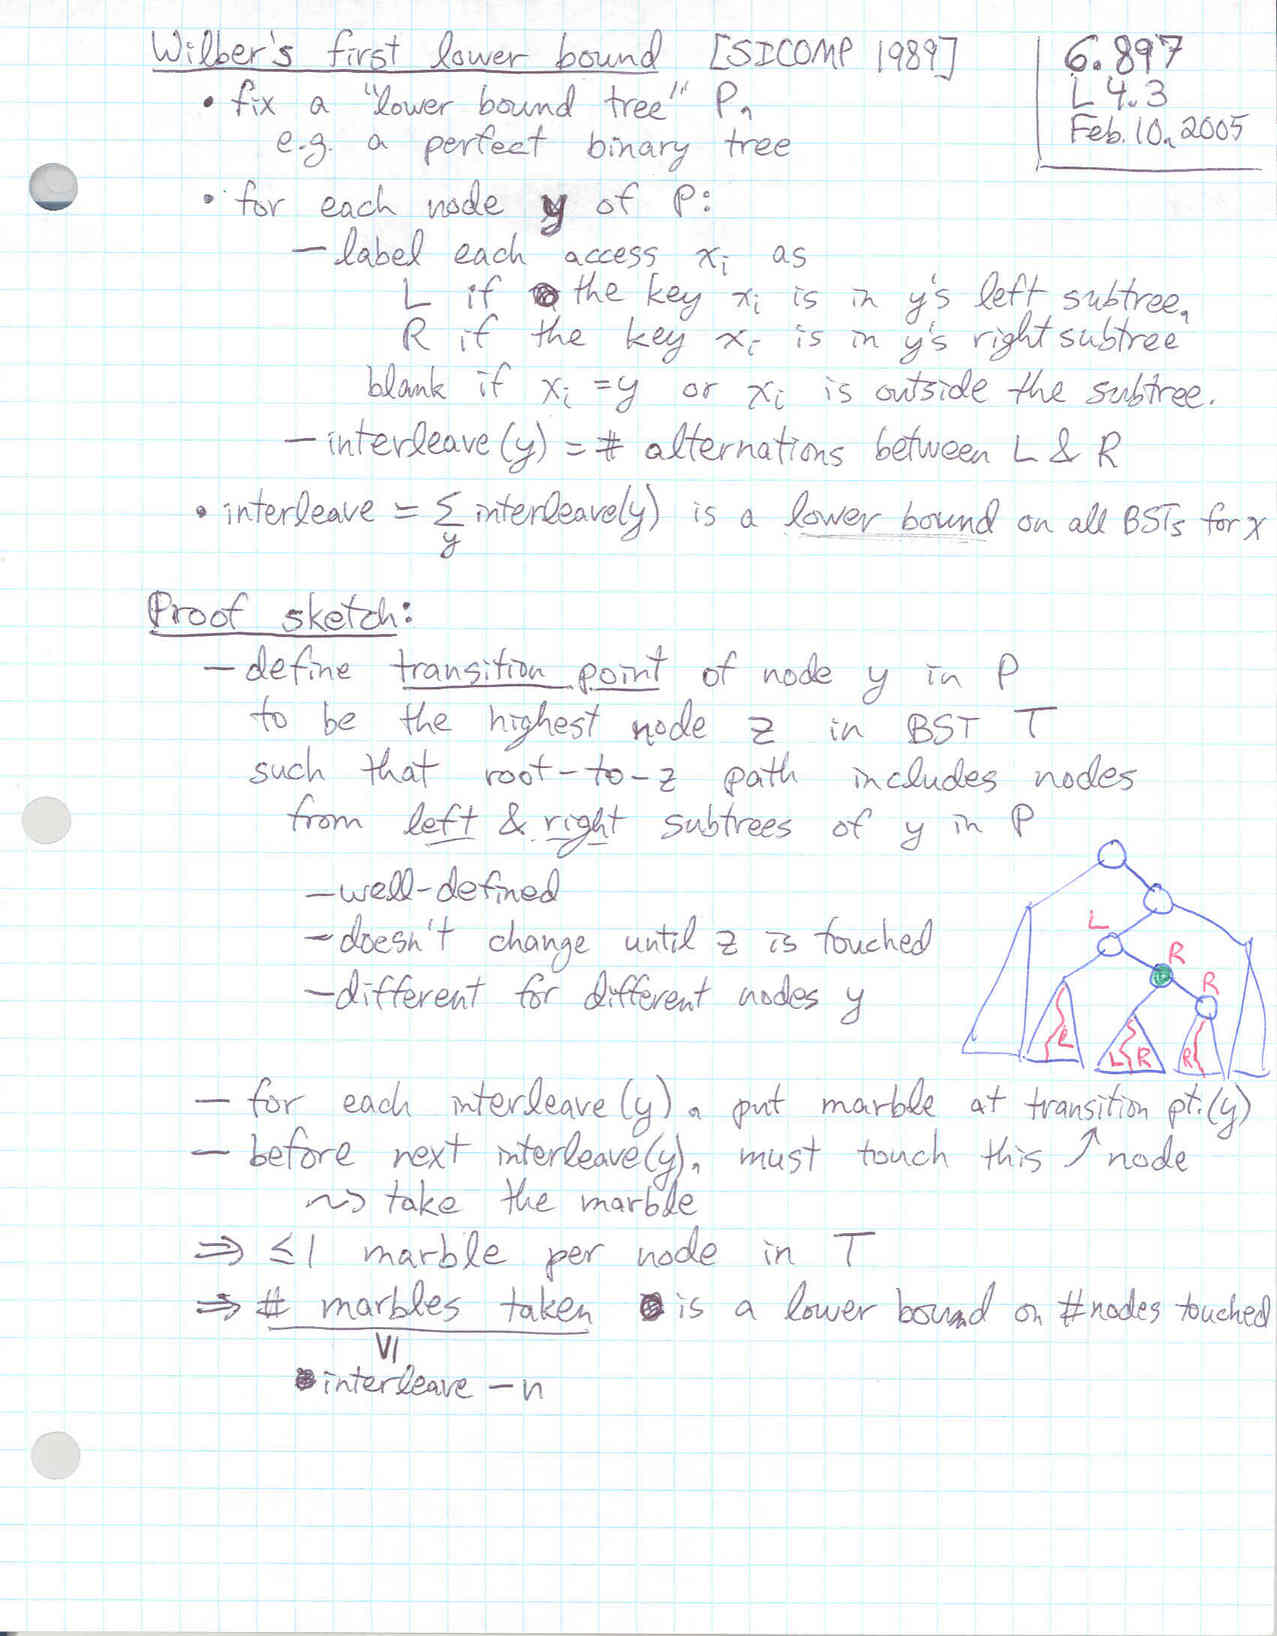 Wilber's first lower bound [SICOMP 1989]
6.897
L 4.3
Feb. 10, 2005
• fix a "lower bound tree" P,
e.g. a perfect binary tree
• for each node y of P:
— label each access xᵢ as
L if the key xᵢ is in y's left subtree,
R if the key xᵢ is in y's right subtree
blank if xᵢ = y or xᵢ is outside the subtree.
— interleave(y) = # alternations between L & R
• interleave = Σ interleave(y) is a lower bound on all BSTs for x
y
Proof sketch:
— define transition point of node y in P
to be the highest node z in BST T
such that root-to-z path includes nodes
from left & right subtrees of y in P
— well-defined
— doesn't change until z is touched
— different for different nodes y
L
R
R
L R
R
— for each interleave(y), put marble at transition pt.(y)
— before next interleave(y), must touch this ↗ node
⤳ take the marble
⇒ ≤1 marble per node in T
⇒ # marbles taken is a lower bound on # nodes touched
VI
interleave - n